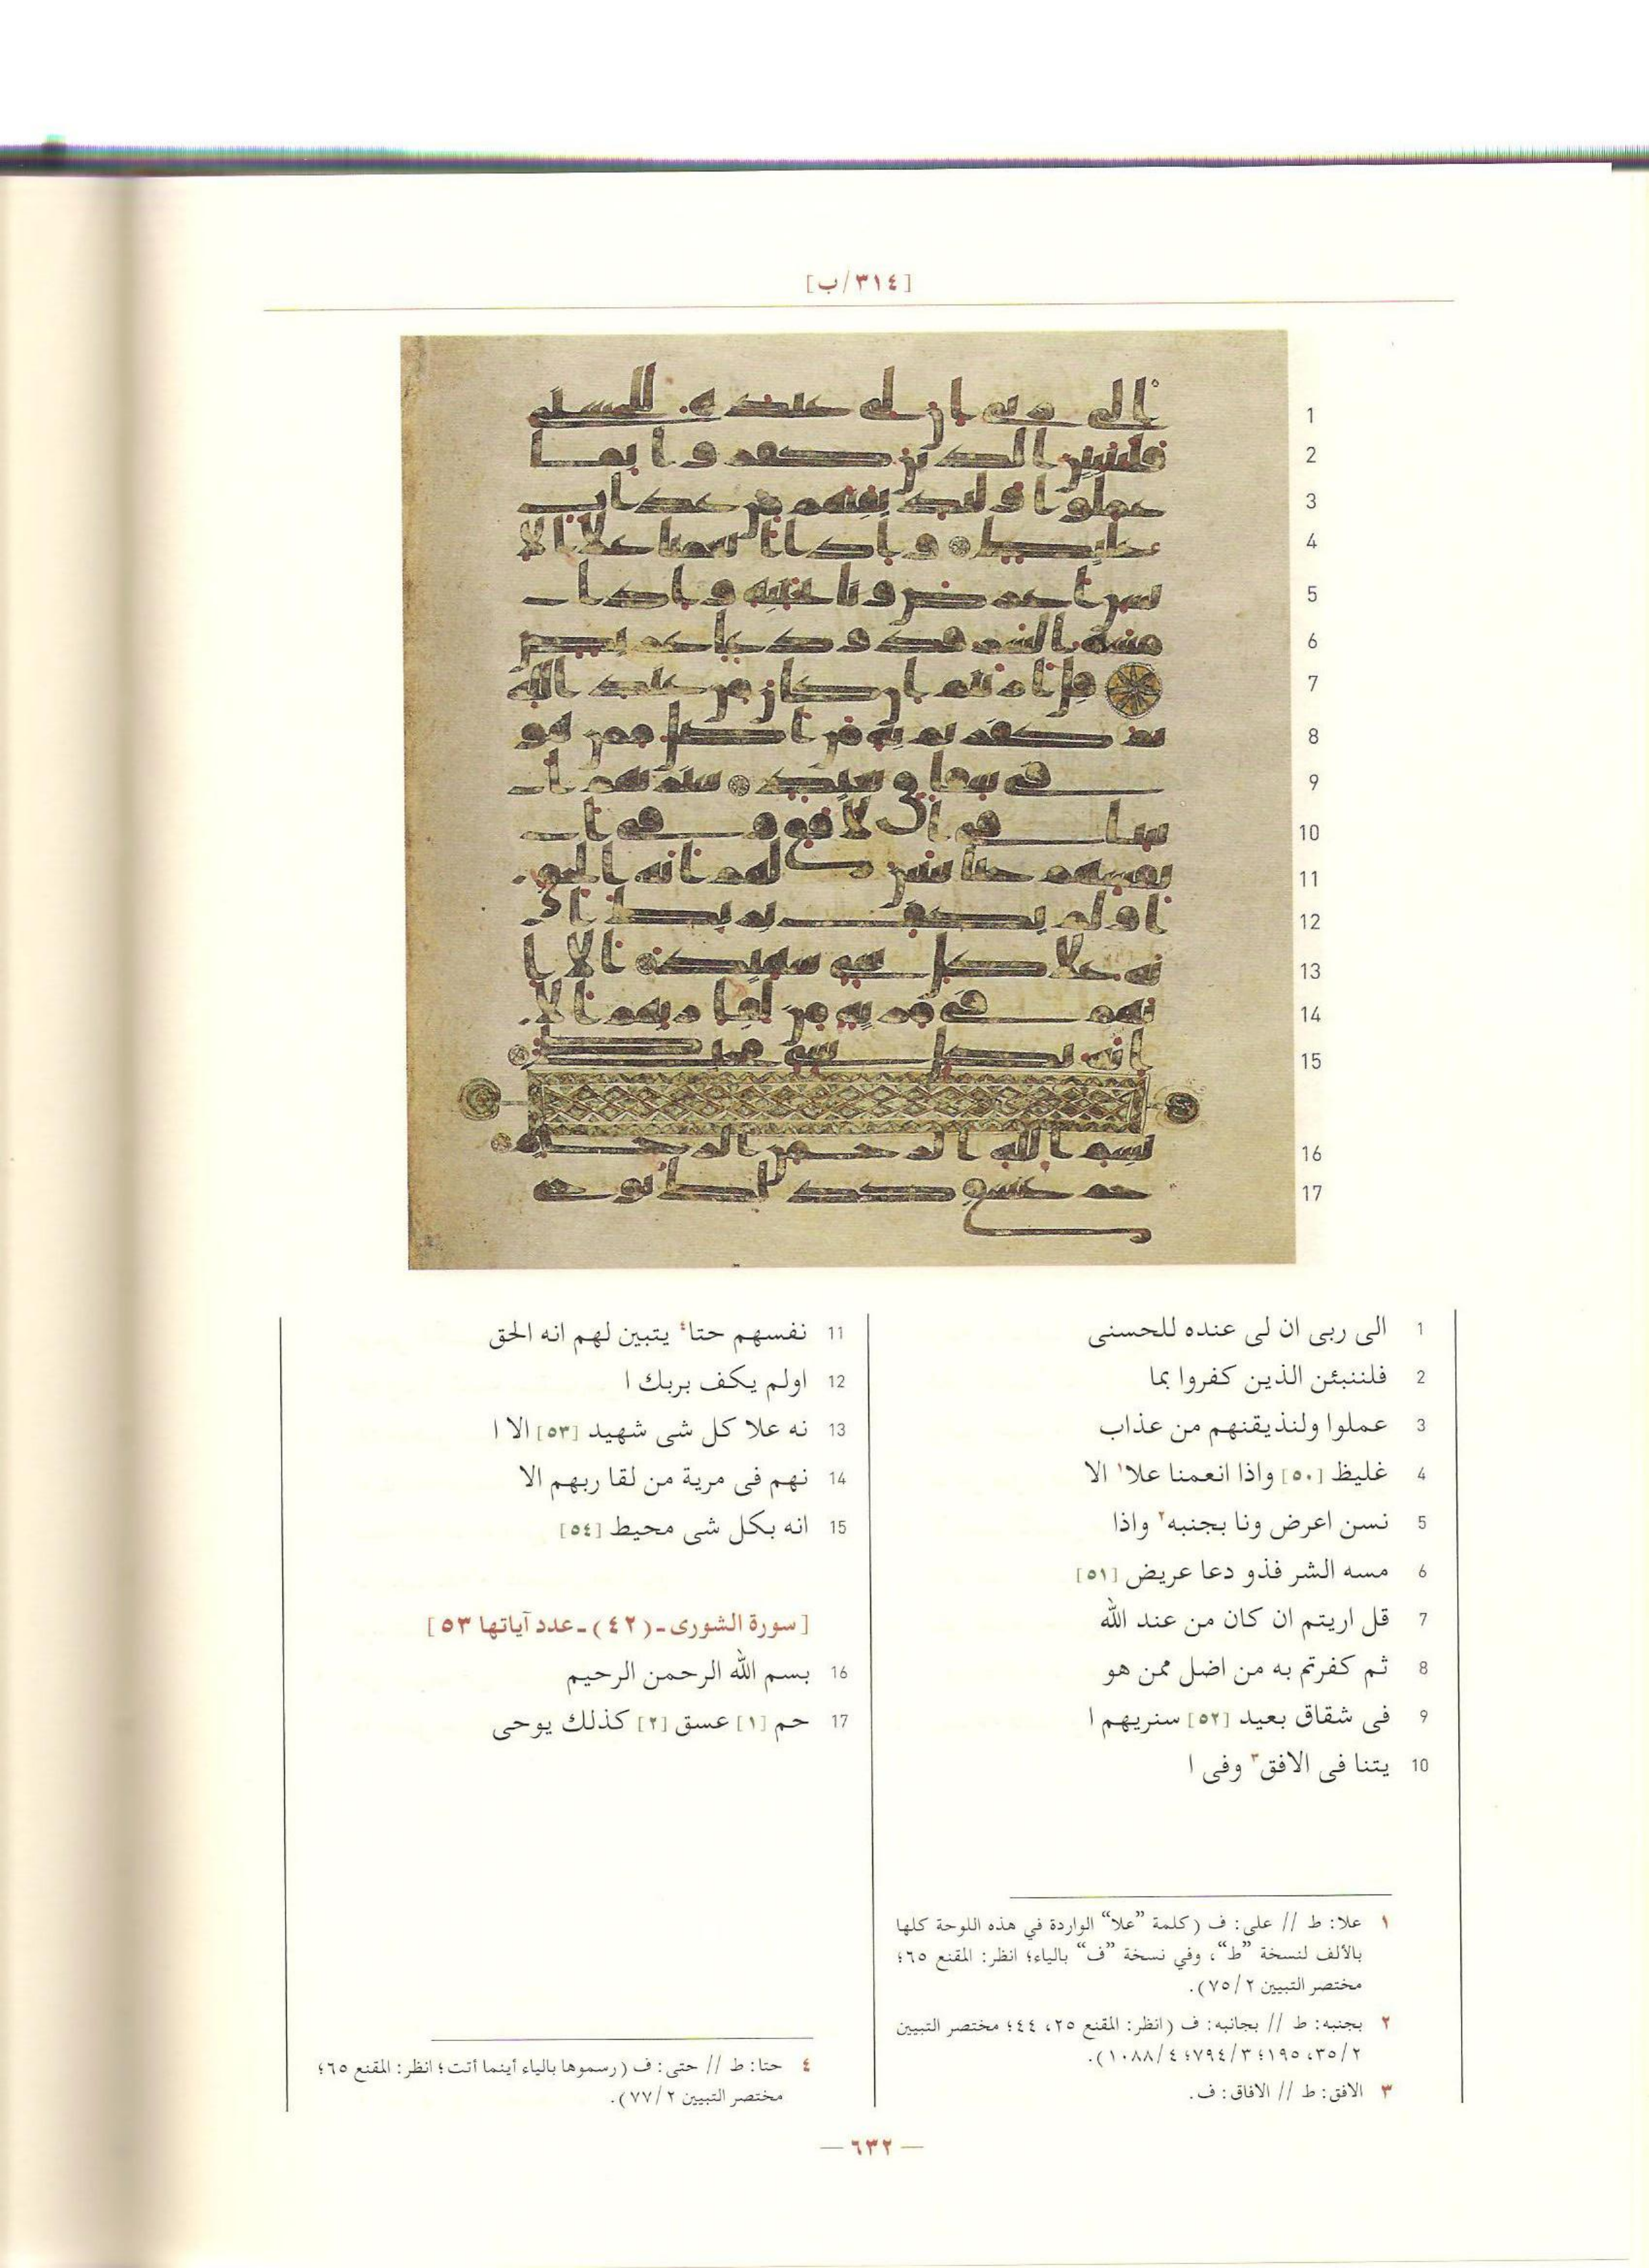 [٣١٤/ب]
1 الى ربى ان لى عنده للحسنى
2 فلننبئن الذين كفروا بما
3 عملوا ولنذيقنهم من عذاب
4 غليظ [٥٠] واذا انعمنا علا١ الا
5 نسن اعرض ونا بجنبه٢ واذا
6 مسه الشر فذو دعا عريض [٥١]
7 قل اريتم ان كان من عند الله
8 ثم كفرتم به من اضل ممن هو
9 فى شقاق بعيد [٥٢] سنريهم ا
10 يتنا فى الافق٣ وفى ا
11 نفسهم حتا٤ يتبين لهم انه الحق
12 اولم يكف بربك ا
13 نه علا كل شى شهيد [٥٣] الا ا
14 نهم فى مرية من لقا ربهم الا
15 انه بكل شى محيط [٥٤]
[سورة الشورى ـ (٤٢) ـ عدد آياتها ٥٣]
16 بسم الله الرحمن الرحيم
17 حم [١] عسق [٢] كذلك يوحى
١ علا: ط // على: ف (كلمة ”علا“ الواردة في هذه اللوحة كلها
بالألف لنسخة ”ط“، وفي نسخة ”ف“ بالياء؛ انظر: المقنع ٦٥؛
مختصر التبيين ٧٥/٢).
٢ بجنبه: ط // بجانبه: ف (انظر: المقنع ٢٥، ٤٤؛ مختصر التبيين
٣٥/٢، ١٩٥؛ ٧٩٤/٣؛ ١٠٨٨/٤).
٣ الافق: ط // الافاق: ف.
٤ حتا: ط // حتى: ف (رسموها بالياء أينما أتت؛ انظر: المقنع ٦٥؛
مختصر التبيين ٧٧/٢).
— ٦٣٢ —